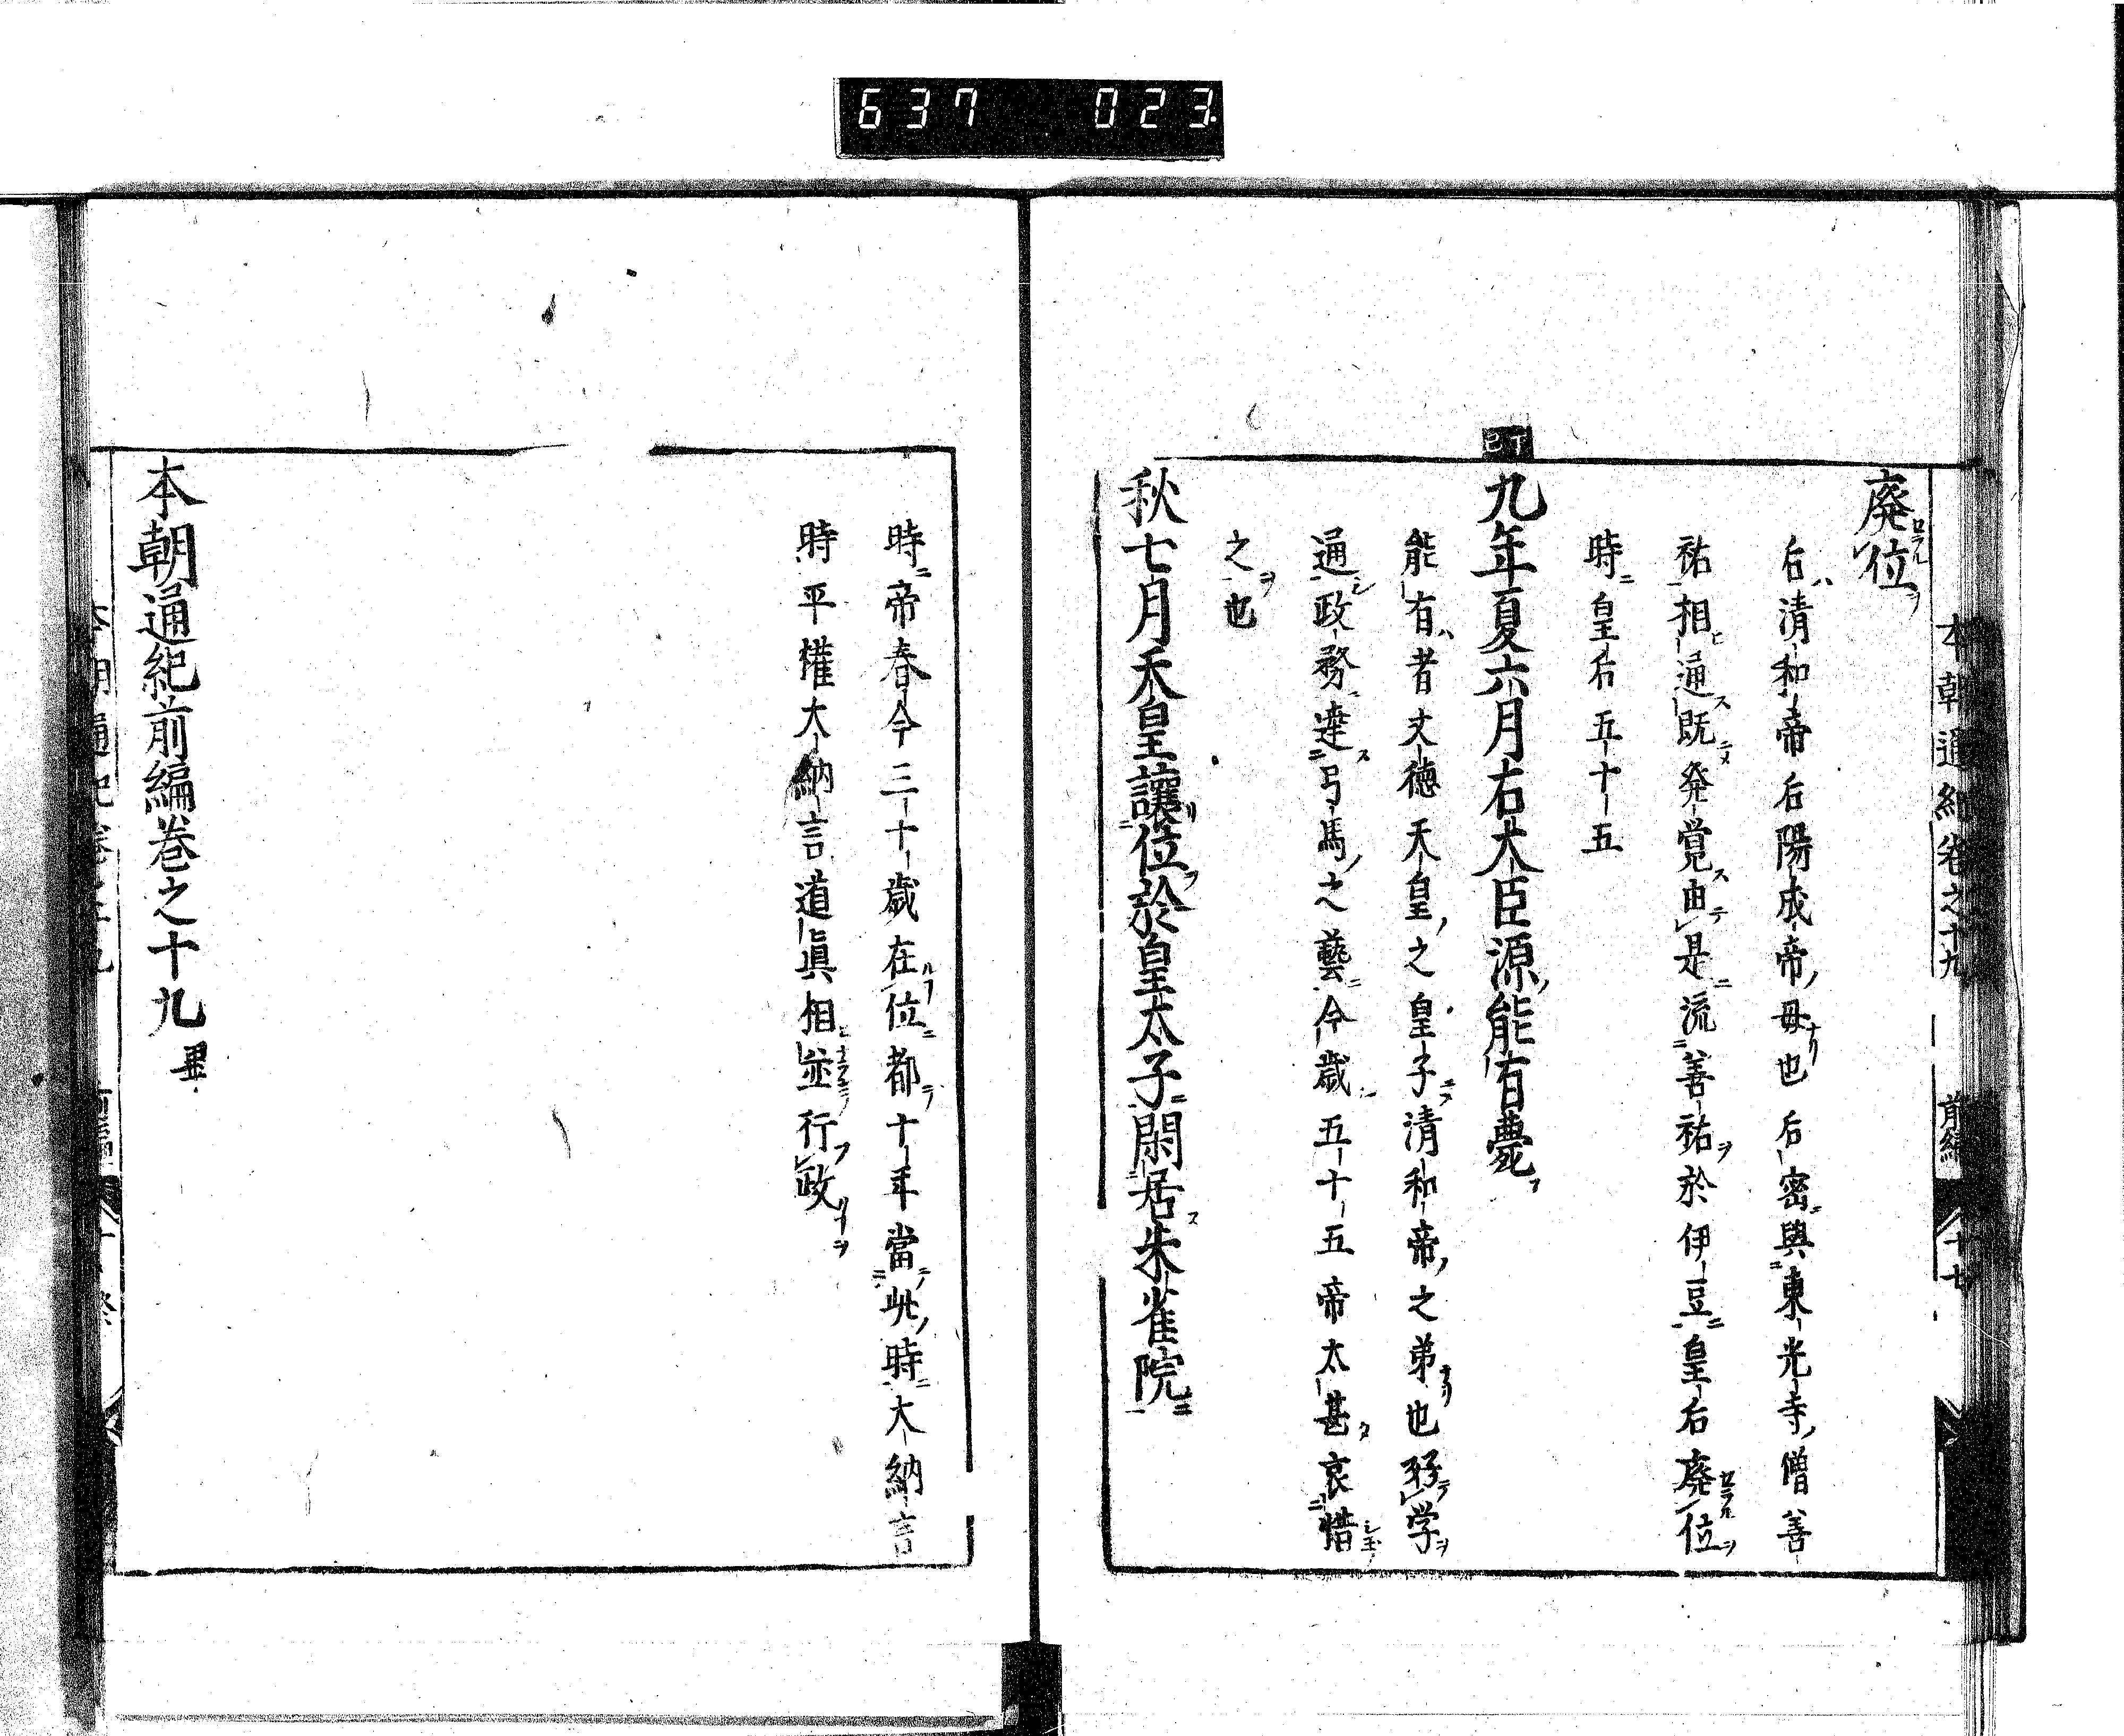 637 023
本朝通紀卷之十九 前編 十七
廃位
后清和帝后陽成帝母也后密與東光寺僧善
祐相通既発覚由是流善祐於伊豆皇后廃位
時皇后五十五
丁巳
九年夏六月右大臣源能有薨
能有者文徳天皇之皇子清和帝之弟也好学
通政務達弓馬之藝今歳五十五帝太甚哀惜
之也
秋七月天皇讓位於皇太子閑居朱雀院
時帝春今三十歳在位都十年當此時大納言
時平權大納言道眞相並行政
本朝通紀前編巻之十九 畢